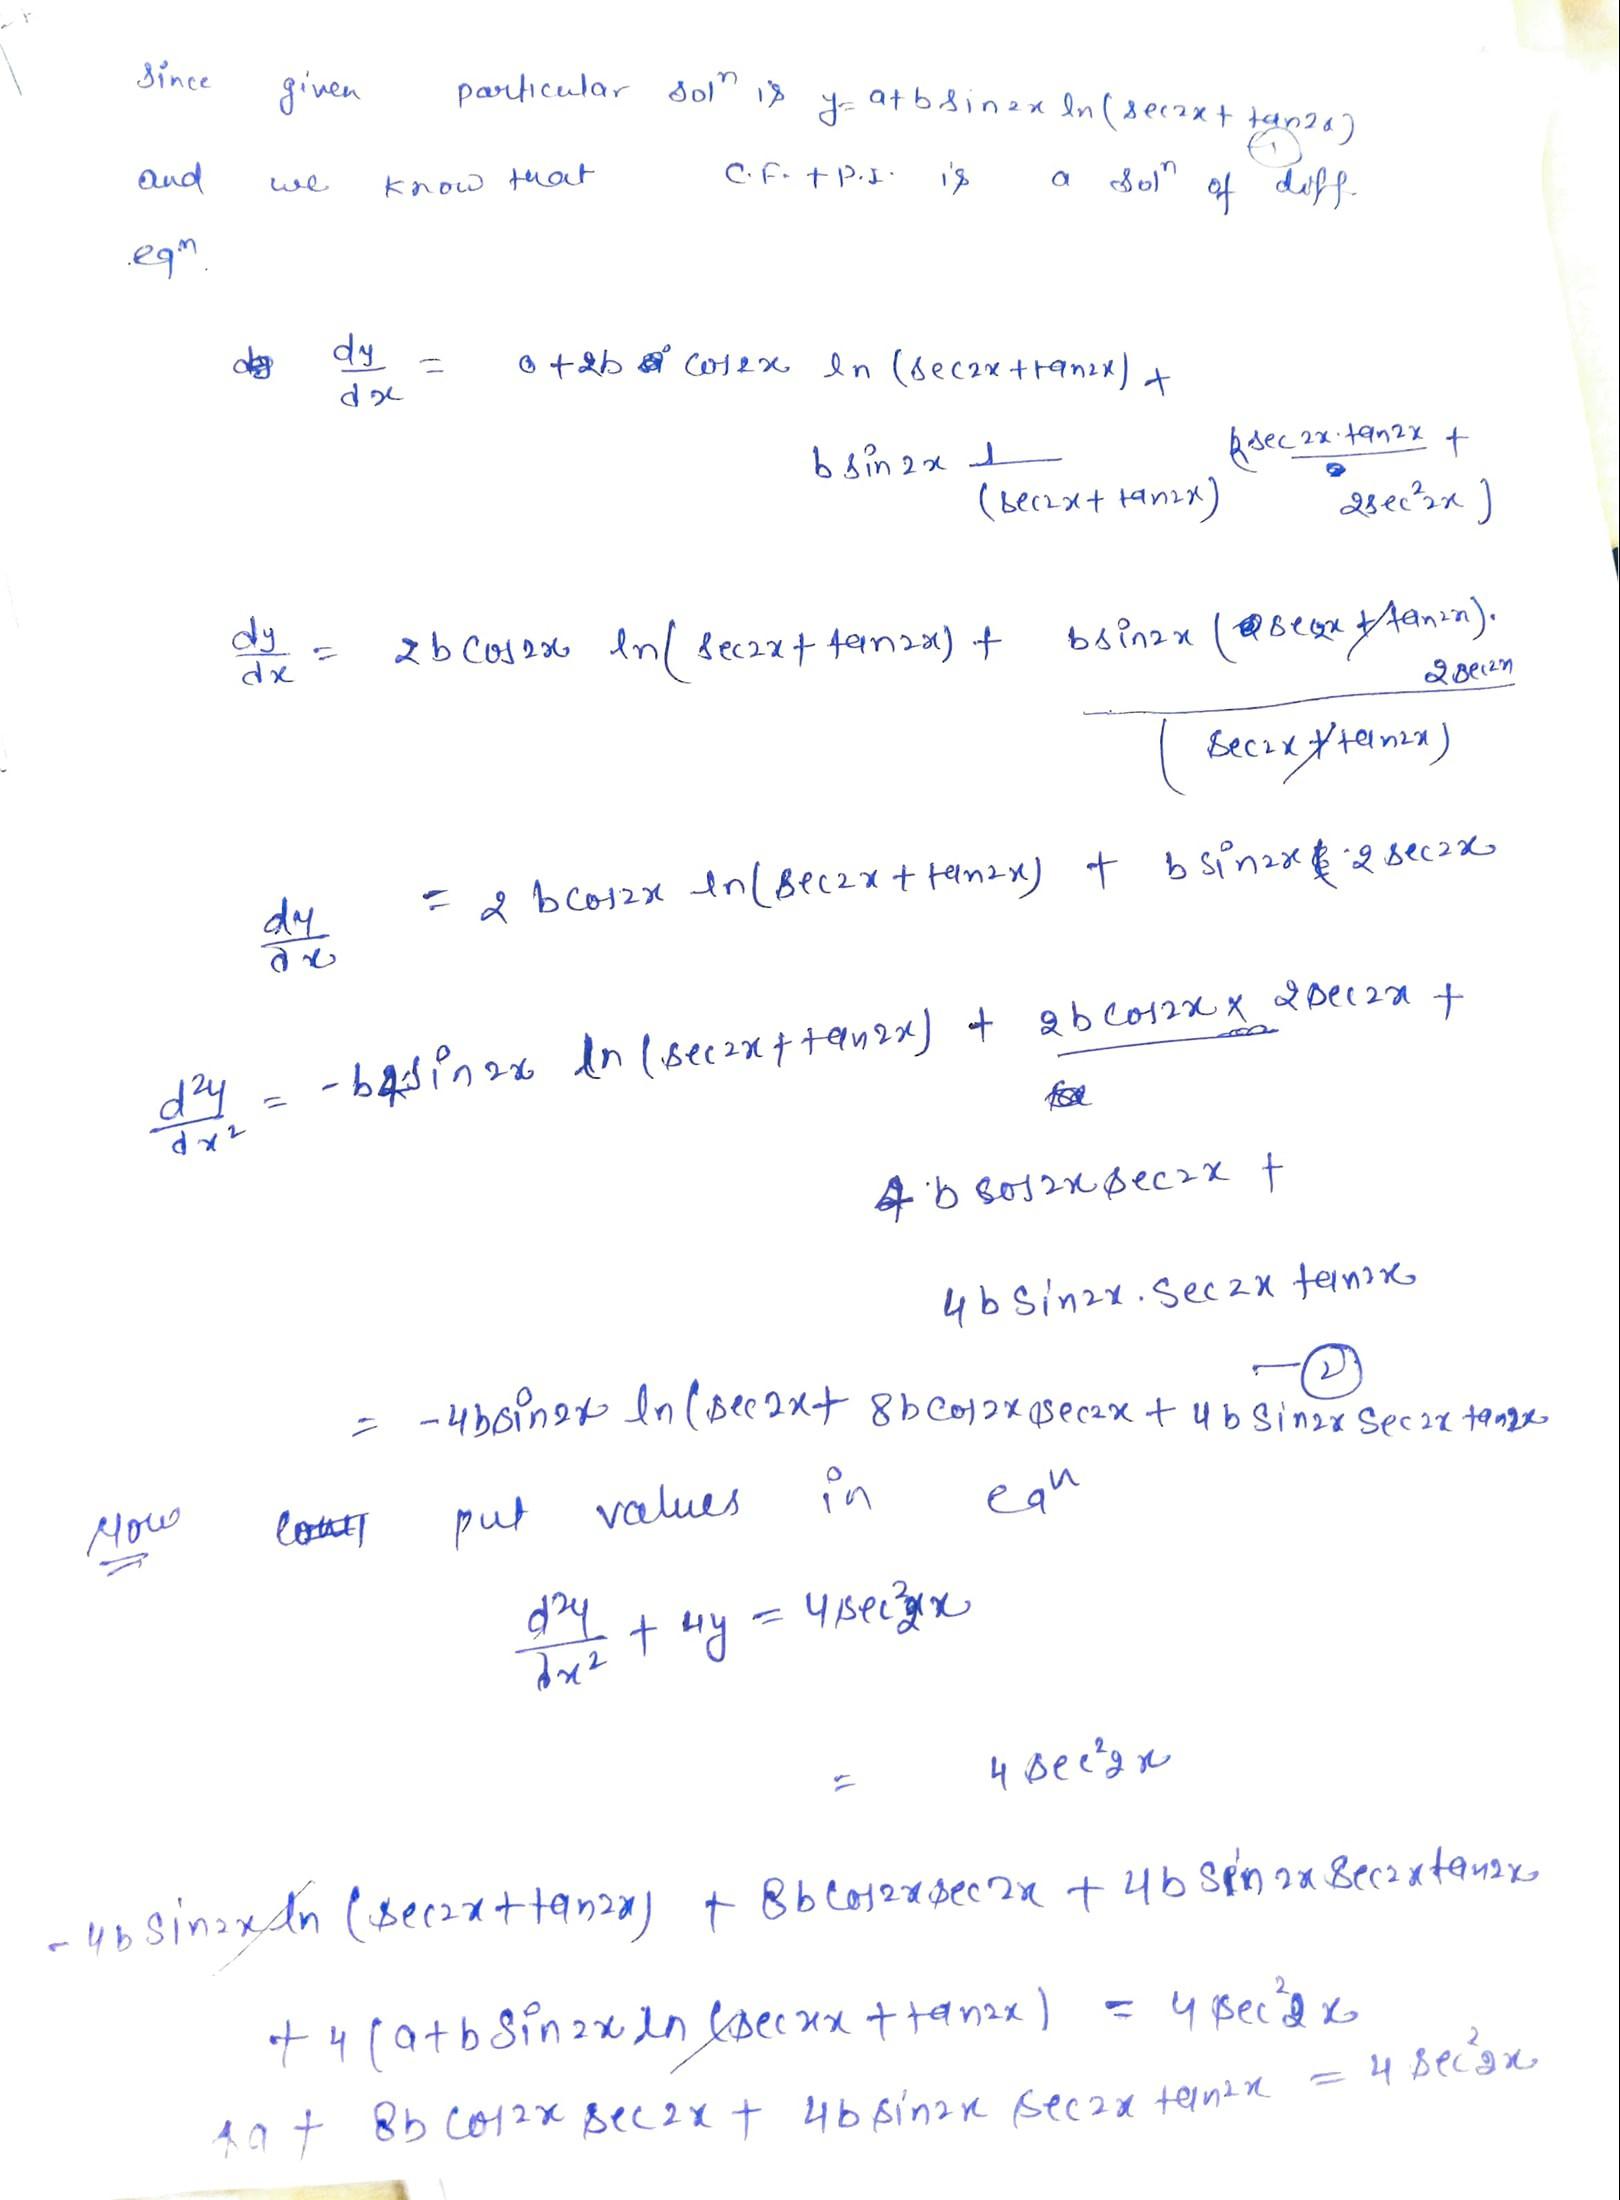 Since given particular solⁿ is y= a+b sin2x ln(sec2x+ tan2x)
①
and we know that C.F. + P.I. is a solⁿ of diff.
eqⁿ.
dy/dx = 0+2b cos2x ln (sec2x+tan2x) +
b sin2x 1/(sec2x+ tan2x) (2sec2x.tan2x +
2sec²2x)
dy/dx = 2b cos2x ln( sec2x+ tan2x) + b sin2x (sec2x + tan2x). 2sec2x / (sec2x + tan2x)
dy/dx = 2 b cos2x ln(sec2x + tan2x) + b sin2x . 2 sec2x
d²y/dx² = -b4sin2x ln (sec2x + tan2x) + 2b cos2x x 2sec2x +
4 b cos2x sec2x +
4b sin2x . Sec2x tan2x
— ②
= -4b sin2x ln (sec2x+ 8b cos2x sec2x + 4b sin2x Sec2x tan2x
Now put values in eqⁿ
d²y/dx² + 4y = 4sec²2x
= 4 sec²2x
-4b sin2x ln (sec2x+tan2x) + 8b cos2x sec2x + 4b sin2x Sec2x tan2x
+ 4 (a+b sin2x ln (sec2x + tan2x) = 4 sec²2x
4a + 8b cos2x sec2x + 4b sin2x sec2x tan2x = 4 sec²2x